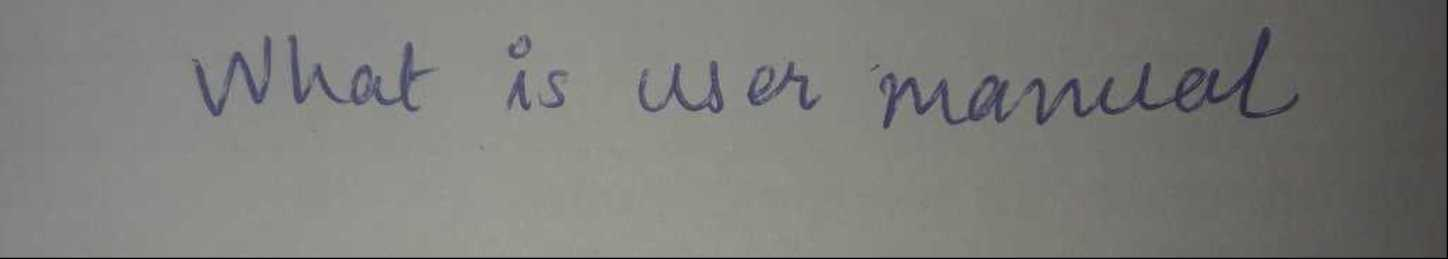 What is user manual